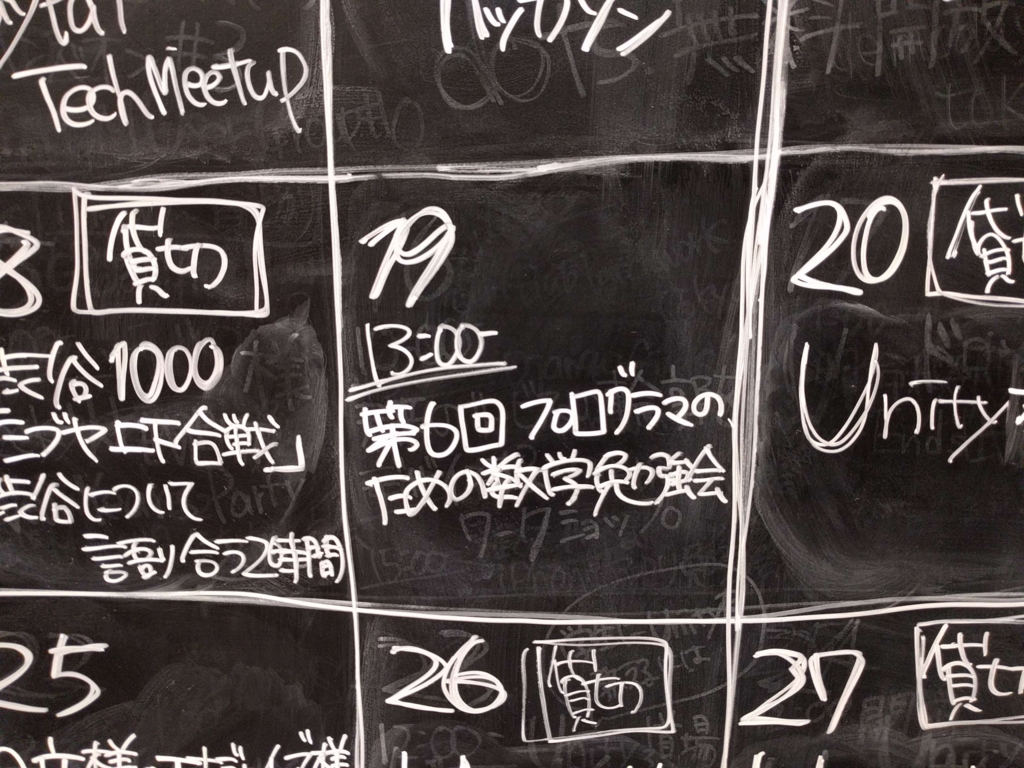 Tech Meetup
ハッカソン
8 貸切
渋谷1000
シブヤ上下合戦」
渋谷について
語り合う2時間
19
13:00-
第6回プログラマの
ための数学勉強会
ワークショップ
15:00
20 貸
Unity
25
26 貸切
27 貸切